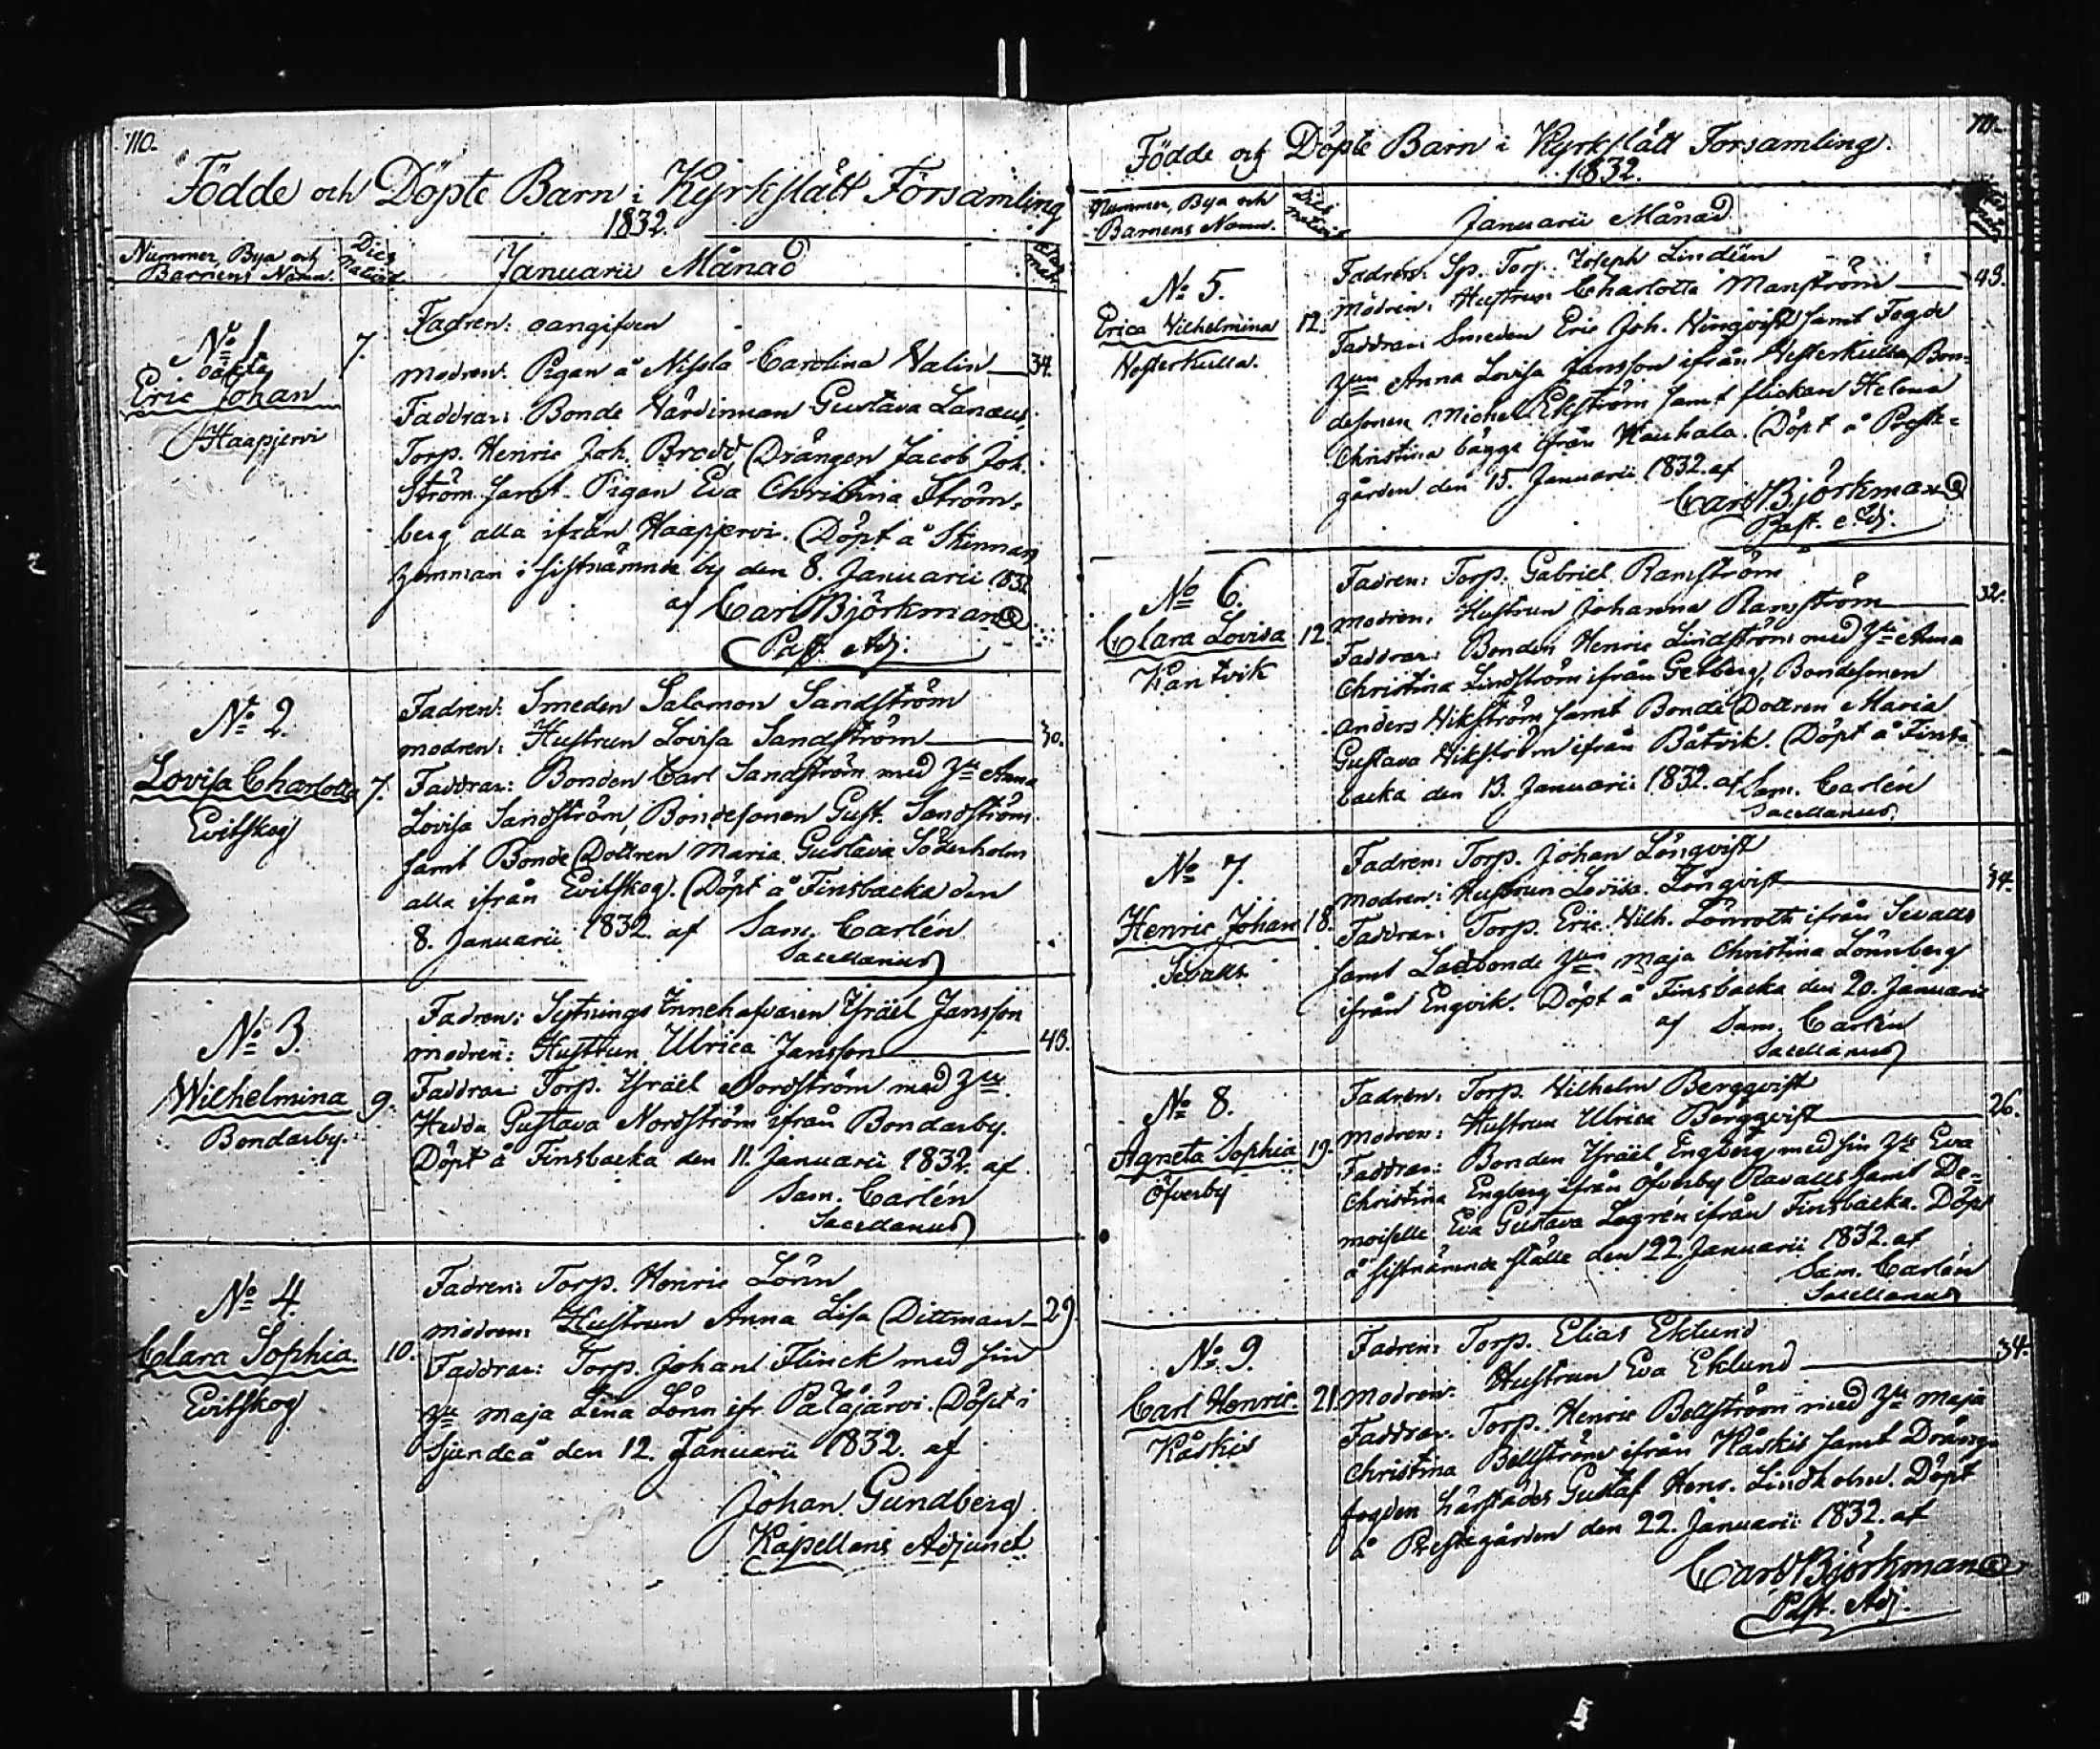 110.
Födde och Döpte Barn i Kyrkslätt Församling
1832.
Nummer, Bya och
Barnens Namn.
Dies
Januarii Månad
No 1
oäkta
Eric Johan
Haapjervi
7.
Fadren: oangifven
Modren: Pigan å Carolina Valin
34.
Faddrar: Bonde Värdinnan Gustava Lanæus,
Torp. Henric Joh. Brodd Drängen Jacob Joh.
Ström samt Pigan Eva Christina Ström-
berg alla ifrån Haapjervi. Döpt å
i sistnämnde by den 8. Januarii 1832
af Carl Björkman
Past. Adj.
No 2.
Lovisa Charlotta
Evitskog
7.
Fadren: Smeden Salomon Sandström
modren: Hustrun Lovisa Sandström
30.
Faddrar: Bonden Carl Sandström med Anna
Lovisa Sandström, Bondesonen Gust. Sandström
samt Bonde Dottren Maria Gustava Söderholm
alla ifrån Evitskog. Döpt å Finsbacka den
8. Januarii 1832. af Sam. Carlén
Sacellanus
No 3.
Wilhelmina
Bondarby.
9.
Fadren: Sytnings Innehafvaren Ysräel Jansson
modren: Hustrun Ulrica Jansson
43.
Faddrar: Torp. Ysräel Nordström med
Hedda Gustava Nordström ifrån Bondarby.
Döpt å Finsbacka den 11. Januarii 1832. af
Sam. Carlén
Sacellanus
No 4.
Clara Sophia.
Evitskog
10.
Fadren: Torp. Henric Lönn
modren: Hustrun Anna Lisa Dittman
29
Faddrar: Torp. Johan Flinck med sin
maja Lena Lönn ifr. Palajärvi. Döpt i
Sjundeå den 12. Januarii 1832. af
Johan Gundberg
Kapellans Adjunct
111.
Födde och Döpte Barn i Kyrkslätt Forsamling.
1832.
Nummer, Bya och
Barnens Namn.
Dies
Januarii Månad
No 5.
Erica Vilhelmina
Vesterkulla.
12.
Fadren: Sp. Torp. Joseph Lindén
Modren: Hustrun Charlotta Manström
43.
Faddrar: Smeden Eric Joh. Vingvist samt Fogde
Anna Lovisa Jansson ifrån Vesterkulla, Bon-
desonen Michel Ekström samt flickan Helena
Christina bägge ifrån Hauhala. Döpt å Prest-
gården den 15. Januarii 1832. af
Carl Björkman
Past. Adj.
No 6.
Clara Lovisa
Kantvik
12.
Fadren: Torp. Gabriel Ramström
modren: Hustrun Johanna Ramström
32.
Faddrar: Bonden Henric Lindström med Anna
Christina Lindström ifrån Getberg, Bondesonen
Anders Vikström samt Bonde Dottren Maria
Gustava Vikström ifrån Båtvik. Döpt å Fins-
backa den 13. Januarii 1832. af Sam. Carlén
Sacellanus
No 7.
Henric Johan
Sevalls
18.
Fadren: Torp. Johan Löngvist
modren: Hustrun Lovisa Löngvist
34.
Faddrar: Torp. Eric Vilh. Lönroth ifrån Sevalls
samt Ladbonde maja Christina Lönnberg
ifrån Engvik. Döpt å Finsbacka den 20. Januarii
af Sam. Carlén
Sacellanus
No 8.
Agneta Sophia
Öfverby
19.
Fadren: Torp. Vilhelm Berggvist
modren: Hustrun Ulrica Berggvist
26.
Faddrar: Bonden Ysräel Engberg med sin Eva
Christina Engberg ifrån Öfverby Ravalls samt De-
moiselle Eva Gustava Legrén ifrån Finsbacka. Döpt
å sistnämnde ställe den 22. Januarii 1832. af
Sam. Carlén
Sacellanus
No 9.
Carl Henric.
Kåskis
21.
Fadren: Torp. Elias Eklund
Modren: Hustrun Eva Eklund
34.
Faddrar: Torp. Henric Bellström med maja
Christina Bellström ifrån Kåskis samt Dränge
fogden härstädes Gustaf Henr. Lindholm. Döpt
å Prestegården den 22. Januarii 1832. af
Carl Björkman
Past. Adj.